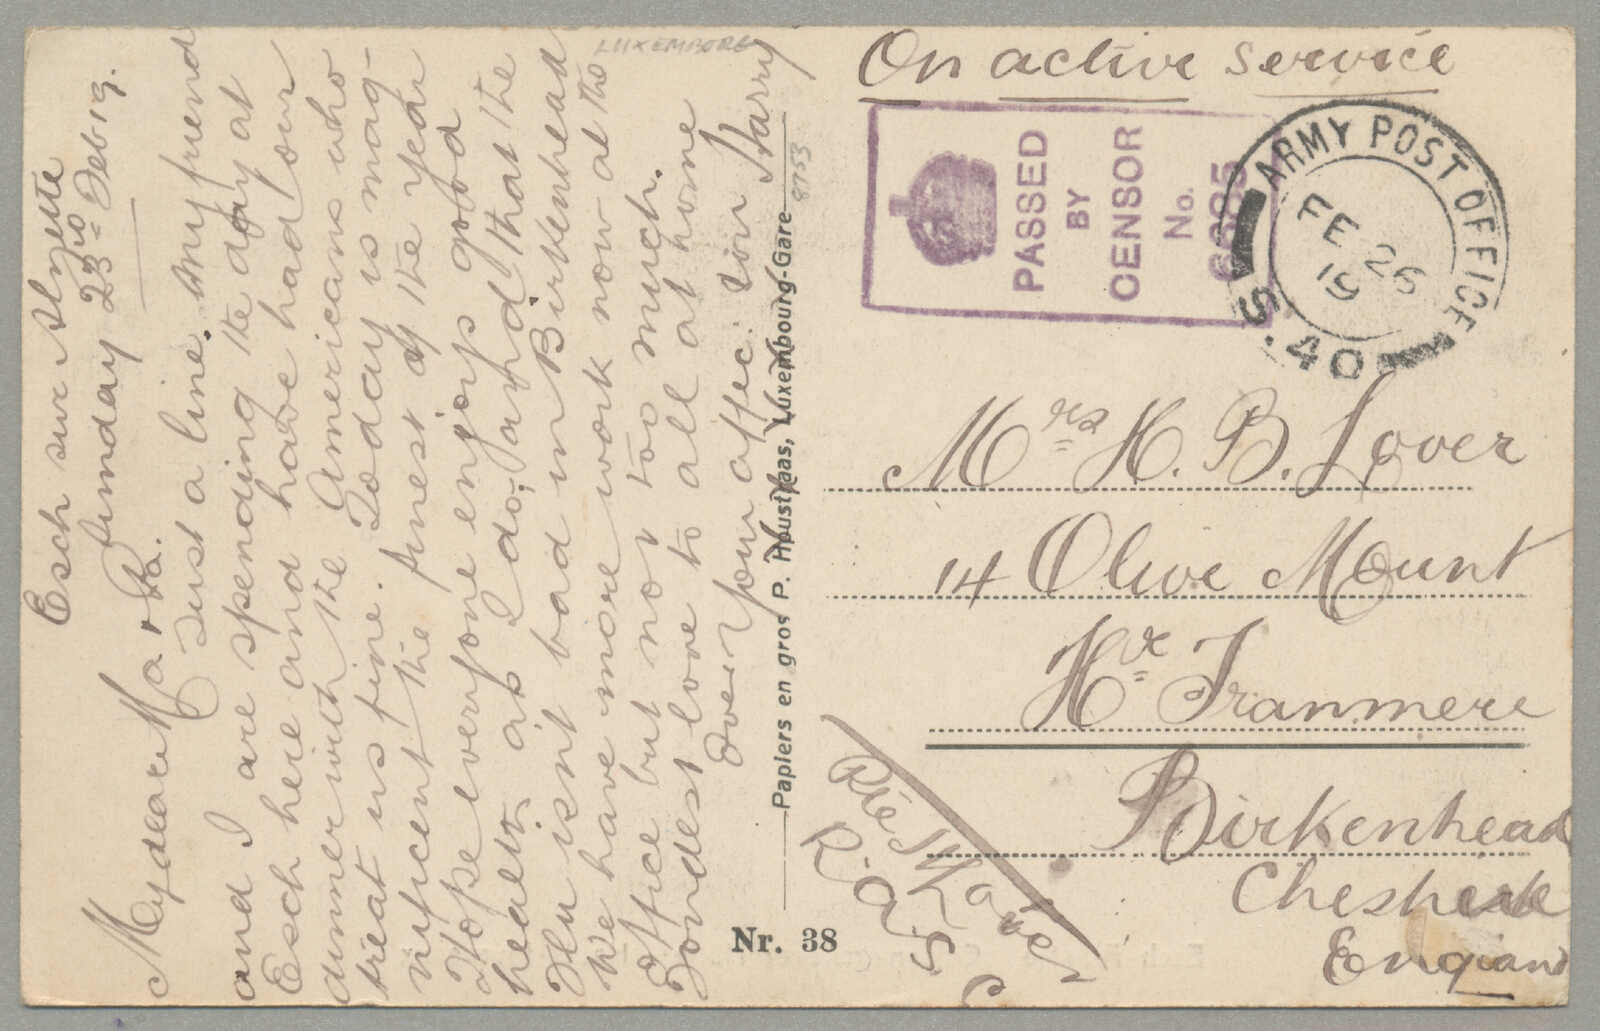 LUXEMBORG
Esch sur Alzette
Sunday 23rd Feb 19.
My dear Ma & Pa.
Just a line. My friend
and I are spending the day at
Esch here and have had our
dinner with the Americans who
treat us fine. Today is mag-
nificent the finest of the year
Hope everyone enjoys good
health, as I do, and that the
Flu isnt bad in Birkenhead
We have more work now at the
Office but not too much.
Fondest love to all at home
Ever Your affec: son Harry
Papiers en gros P. Houstraas, Luxembourg-Gare
Nr. 38
On active service
PASSED
BY
CENSOR
No.
6385
ARMY POST OFFICE
FE 26
19
S.40
Mrs H. B. Lover
14 Olive Mount
Hr Tranmere
Birkenhead
Cheshire
England
Pte H Lover
R.A.S.C